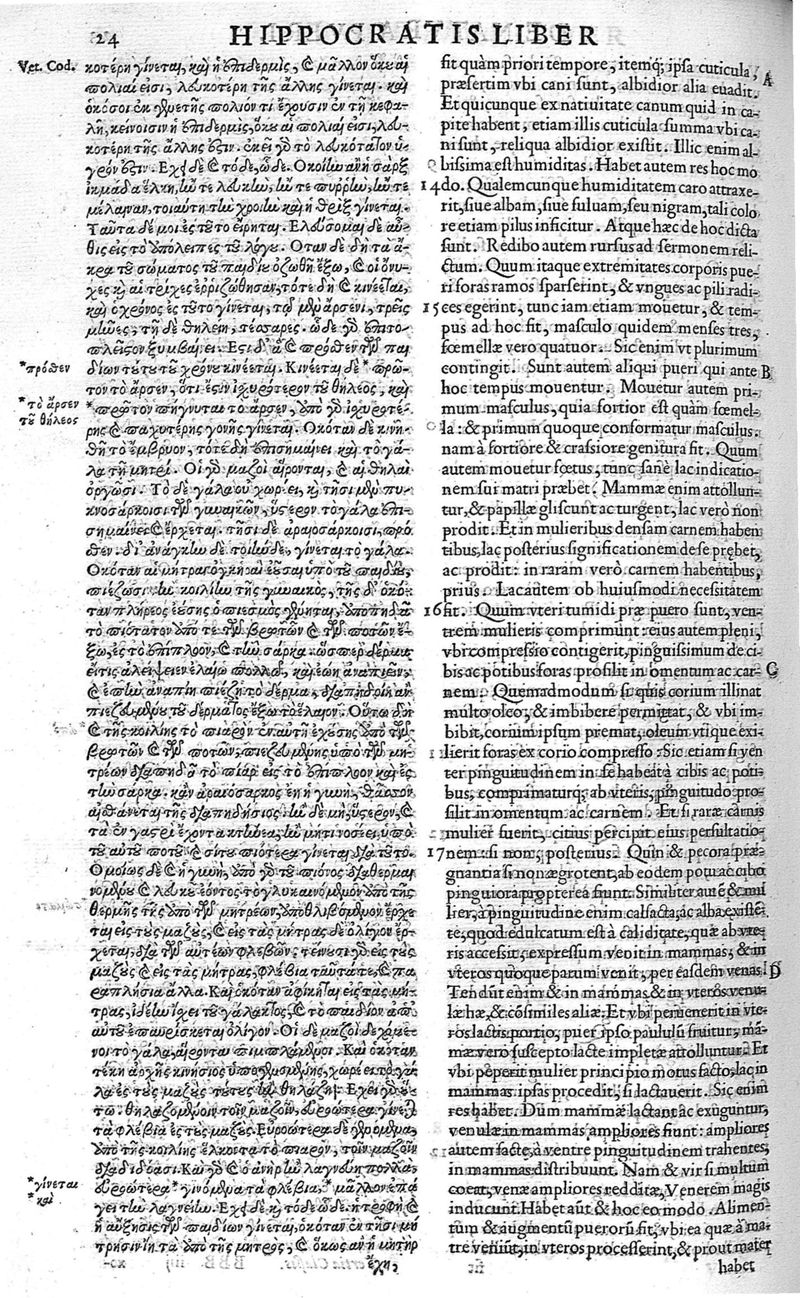 24
HIPPOCRATIS LIBER
Vet. Cod.
κοτέρη γίνεται, καὶ ἡ ἐπιδερμὶς, καὶ μᾶλλον ὅκου αἱ
πολιαί εἰσι, λευκοτέρη τῆς ἄλλης γίνεται. καὶ
ὁκόσοι ἐκ γενετῆς πολιόν τι ἔχουσιν ἐν τῇ κεφα-
λῇ, κείνοισιν ἡ ἐπιδερμὶς, ὅκου αἱ πολιαί εἰσι, λευ-
κοτέρη τῆς ἄλλης ἐστίν. ἐκεῖ γὸ τὸ λευκότατον ὑ-
γρόν ἐστιν. Ἔχει δὲ καὶ τόδε, ὧδε. Ὁκοίην ἂν ἡ σὰρξ
ἰκμάδα ἕλκῃ, ἤν τε λευκὴν, ἤν τε πυρρὴν, ἤν τε
μέλαιναν, τοιαύτη τὴν χροιὴν καὶ ἡ θρὶξ γίνεται.
Ταῦτα δέ μοι ἐς τοῦτο εἴρηται. Ἐλεύσομαι δὲ αὖ-
θις εἰς τὸ ὑπόλειπες τοῦ λόγου. Ὅταν δὲ δὴ τὰ ἄ-
κρα τοῦ σώματος τοῦ παιδίου ὀζωθῇ ἔξω, καὶ οἱ ὄνυ-
χες καὶ αἱ τρίχες ἐρριζώθησαν, τότε δὴ καὶ κινέεται,
καὶ ὁ χρόνος ἐς τοῦτο γίνεται, τῷ μὲν ἄρσενι, τρεῖς
μῆνες, τῇ δὲ θηλείῃ, τέσσαρες. ὧδε γὸ ἐπὶ τὸ
πλεῖστον ξυμβαίνει. Ἔστι δ' ἃ καὶ πρόσθεν τῶν παι
*πρόσθεν
δίων τούτου τοῦ χρόνου κινέεται. Κινέεται δὲ *πρῶ-
τον τὸ ἄρσεν, ὅτι ἐστὶν ἰσχυρότερον τοῦ θήλεος, καὶ
*τὸ ἄρσεν
τοῦ θήλεος
*πρῶτον πήγνυται τὸ ἄρσεν, ὑπὸ γὸ ἰσχυροτέ-
ρης καὶ παχυτέρης γονῆς γίνεται. Ὁκόταν δὲ κινη-
θῇ τὸ ἔμβρυον, τότε δὴ ἐπισημαίνει καὶ τὸ γά-
λα τῇ μητρί. Οἱ γὸ μαζοὶ αἴρονται, καὶ αἱ θηλαὶ
ὀργῶσι. Τὸ δὲ γάλα οὐ χωρέει, καὶ τῇσι μὲν πυ-
κνοσάρκοισι τῶν γυναικῶν, ὕστερον τὸ γάλα ἐπι-
σημαίνει καὶ ἔρχεται. τῇσι δὲ ἀραιοσάρκοισι, πρό-
σθεν. δι' ἀνάγκην δὲ τοιήνδε, γίνεται τὸ γάλα.
Ὁκόταν αἱ μῆτραι ὀγκηραὶ ἐοῦσαι ὑπὸ τοῦ παιδίου,
πιέζωσι τὴν κοιλίην τῆς γυναικὸς, τῆς δὲ ὁκό-
ταν πλήρεος ἐούσης ὁ πιεσμὸς γένηται, ἀποπηδᾷ
τὸ πιότατον ἀπό τε τῶν βρωτῶν καὶ τῶν ποτῶν ἔ-
ξω, ἐς τὸ ἐπίπλοον, καὶ τὴν σάρκα. ὥσπερ δέρμα
εἴ τις ἀλείψειεν ἐλαίῳ πολλῷ, καὶ ἐῴη ἀναπιεῖν,
καὶ ἐπὴν ἀναπίῃ πιέζῃ τὸ δέρμα, διαπηδοίη ἂν
πιεζομένου τοῦ δέρματος ἔξω τὸ ἔλαιον. Οὕτω δὴ
καὶ τῆς κοιλίης τὸ πίαρον ἐν αὑτῇ ἐχούσης ἀπὸ τῶν
βρωτῶν καὶ τῶν ποτῶν, πιεζομένης ὑπὸ τῶν μη-
τρέων διαπηδᾷ τὸ πῖαρ εἰς τὸ ἐπίπλοον καὶ ἐς
τὴν σάρκα. κἂν ἀραιόσαρκος ἔῃ ἡ γυνὴ, θᾶσσον
αἰσθάνεται τῆς διαπηδήσιος· ἢν δὲ μὴ, ὕστερον. καὶ
τὰ ἐν γαστρὶ ἔχοντα κτήνεα, ἢν μή τι νοσέῃ, ὑπὸ
τοῦ αὐτοῦ ποτοῦ καὶ σίτου πιότερα γίνεται διὰ τοῦτο.
Ὁμοίως δὲ καὶ ἡ γυνὴ, ὑπὸ γὸ τοῦ πίονος διαθερμαι
νομένου καὶ λευκοῦ ἐόντος, τὸ γλυκαινόμενον ὑπὸ τῆς
θέρμης τῆς ἀπὸ τῶν μητρέων, ἀποθλιβόμενον ἔρχε
ται εἰς τοὺς μαζοὺς, καὶ εἰς τὰς μήτρας δὲ ὀλίγον ἔρ-
χεται, διὰ τῶν αὐτέων φλεβῶν. τείνουσι γὸ εἰς τοὺς
μαζοὺς καὶ εἰς τὰς μήτρας, φλέβια ταῦτά τε, καὶ πα
ραπλήσια ἄλλα. Καὶ ὁκόταν ἀφίκηται εἰς τὰς μή-
τρας, ἰδέην ἴσχει τοῦ γάλακτος, καὶ τὸ παιδίον ἀπ'
αὐτοῦ ἐπαυρίσκεται ὀλίγον. Οἱ δὲ μαζοὶ δεχόμε-
νοι τὸ γάλα, αἴρονται πιμπλάμενοι. Καὶ ὁκόταν
τέκῃ ἀρχῆς κινήσιος ὑπογενομένης, χωρέει τὸ γά-
λα ἐς τοὺς μαζοὺς τούτους ἢν θηλάζῃ. Ἔχει γὸ οὕ-
τω. θηλαζομένοιν τοῖν μαζοῖν, εὐρωότερα γίνεται
τὰ φλέβια ἐς τοὺς μαζούς. Εὐρωότερα δὲ γενόμενα,
ἀπὸ τῆς κοιλίης ἕλκοντα τὸ πίαρον, τοῖν μαζοῖν
διαδιδόασι. Καὶ γὸ καὶ ὁ ἀνὴρ ἢν λαγνεύῃ πολλὰ,
*γίνεται
*καὶ
εὐρωότερα *γινόμενα τὰ φλέβια, *μᾶλλον ἐπά
γει τὴν λαγνείην. Ἔχει δὲ καὶ τόδε ὧδε. ἡ τροφὴ καὶ
ἡ αὔξησις τῶν παιδίων γίνεται, ὁκόταν ἐν τῇσι μή
τρῃσιν ἴῃ τὰ ἀπὸ τῆς μητρὸς, καὶ ὅκως ἂν ἡ μήτηρ
ἔχῃ,
fit quàm priori tempore, itemq; ipsa cuticula,
A
præsertim vbi cani sunt, albidior alia euadit.
Et quicunque ex natiuitate canum quid in ca-
pite habent, etiam illis cuticula summa vbi ca-
ni sunt, reliqua albidior existit. Illic enim al-
bissima est humiditas. Habet autem res hoc mo
14 do. Qualemcunque humiditatem caro attraxe-
rit, siue albam, siue fuluam, seu nigram, tali colo
re etiam pilus inficitur. Atque hæc de hoc dicta
sunt. Redibo autem rursus ad sermonem reli-
ctum. Quum itaque extremitates corporis pue-
ri foras ramos sparserint, & vngues ac pili radi-
15 ces egerint, tunc iam etiam mouetur, & tem-
pus ad hoc fit, masculo quidem menses tres,
fœmellæ vero quatuor. Sic enim vt plurimum
contingit. Sunt autem aliqui pueri qui ante
B
hoc tempus mouentur. Mouetur autem pri-
mum masculus, quia fortior est quàm fœmel-
la: & primum quoque conformatur masculus.
nam à fortiore & crassiore genitura fit. Quum
autem mouetur fœtus, tunc sanè lac indicatio-
nem sui matri præbet. Mammæ enim attollun-
tur, & papillæ gliscunt ac turgent, lac verò non
prodit. Et in mulieribus densam carnem haben
tibus, lac posterius significationem de se præbet,
ac prodit: in raram verò carnem habentibus,
prius. Lac autem ob huiusmodi necessitatem
16 fit. Quum vteri tumidi præ puero sunt, ven-
trem mulieris comprimunt: eius autem pleni,
vbi compressio contigerit, pinguissimum de ci-
bis ac potibus foras prosilit in omentum ac car-
C
nem. Quemadmodum si quis corium illinat
multo oleo, & imbibere permittat, & vbi im-
bibit, corium ipsum premat, oleum vtique exi-
lierit foras ex corio compresso. Sic etiam si ven
ter pinguitudinem in se habeat à cibis ac poti-
bus, comprimaturq; ab vteris, pinguitudo pro-
silit in omentum ac carnem. Et si raræ carnis
mulier fuerit, citius percipit eius persultatio-
17 nem: si non, posterius. Quin & pecora præ-
gnantia si non ægrotent, ab eodem potu ac cibo
pinguiora propterea fiunt. Similiter autē & mu
lier, à pinguitudine enim calfacta, ac alba existē-
te, quod edulcatum est à caliditate, quæ ab vte-
ris accessit, expressum venit in mammas, & in
vteros quoque parum venit, per easdem venas.
D
Tendūt enim & in mammas, & in vteros venu-
læ hæ, & cōsimiles aliæ. Et vbi peruenerit in vte-
ros lactis portio, puer ipso paululū fruitur, mā-
mæ vero suscepto lacte impletæ attolluntur. Et
vbi peperit mulier principio motus facto, lac in
mammas ipsas procedit, si lactauerit. Sic enim
res habet. Dum mammæ lactant ac exuguntur,
venulæ in mammas ampliores fiunt: ampliores
autem factæ, à ventre pinguitudinem trahentes,
in mammas distribuunt. Nam & vir si multum
coeat, venæ ampliores redditæ, Venerem magis
inducunt. Habet aūt & hoc eo modo. Alimen-
tum & augmentū puerorū fit, vbi ea quæ à ma-
tre veniūt, in vteros processerint, & prout mater
habet